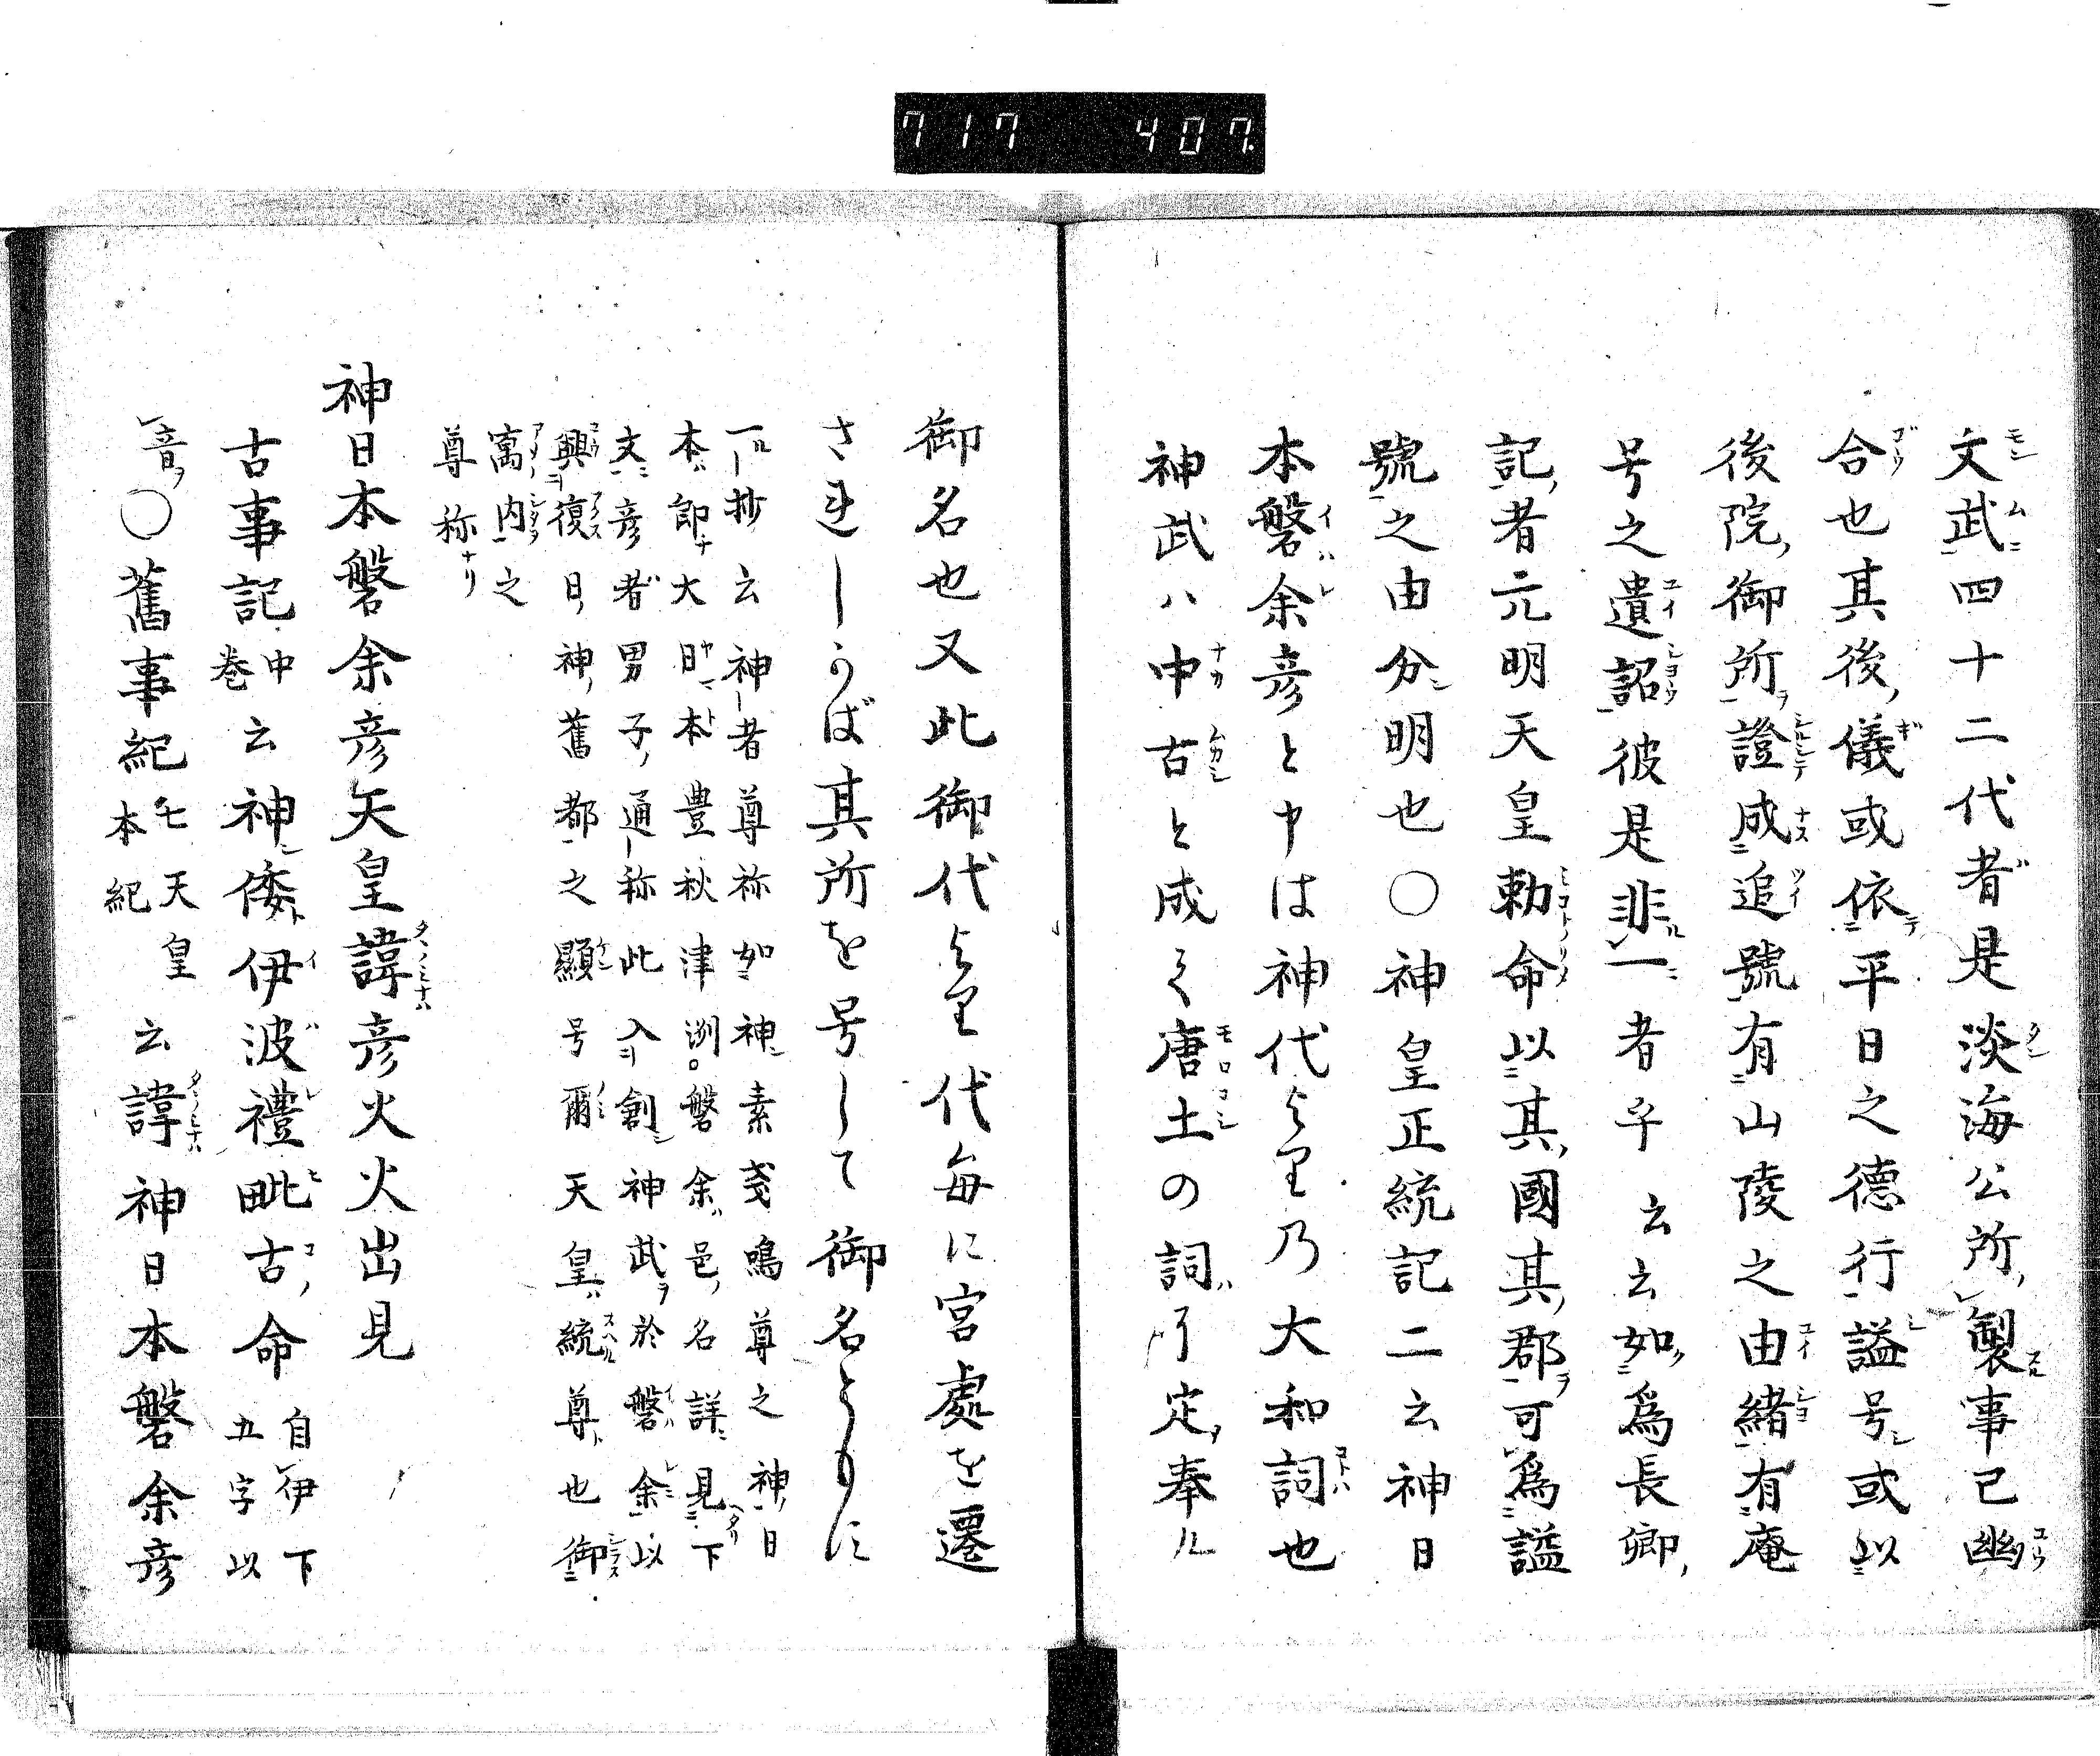 717 407.
文武四十二代者是淡海公所製事已幽
合也其後儀或依平日之德行謚号或以
後院御所證成追號有山陵之由緒有庵
号之遺詔彼是非一者乎云云如爲長卿
記者元明天皇勅命以其國其郡可爲謚
號之由分明也〇神皇正統記二云神日
本磐余彦と申は神代より乃大和詞也
神武ハ中古と成て唐土の詞定奉ル
御名也又此御代より代每に宮處を遷
されしかば其所を号して御名ともに
一抄云神者尊称如神素戔嗚尊之神日
本即大日本豊秋津洲磐余邑名詳見下
文彦者男子通称此入創神武於磐余以
興復日神舊都之顯号爾天皇統尊也御
寓内之
尊称ナリ
神日本磐余彦天皇諱彦火火出見
古事記中巻云神倭伊波禮毗古命自伊下五字以
音〇舊事紀七天皇本紀云諱神日本磐余彦